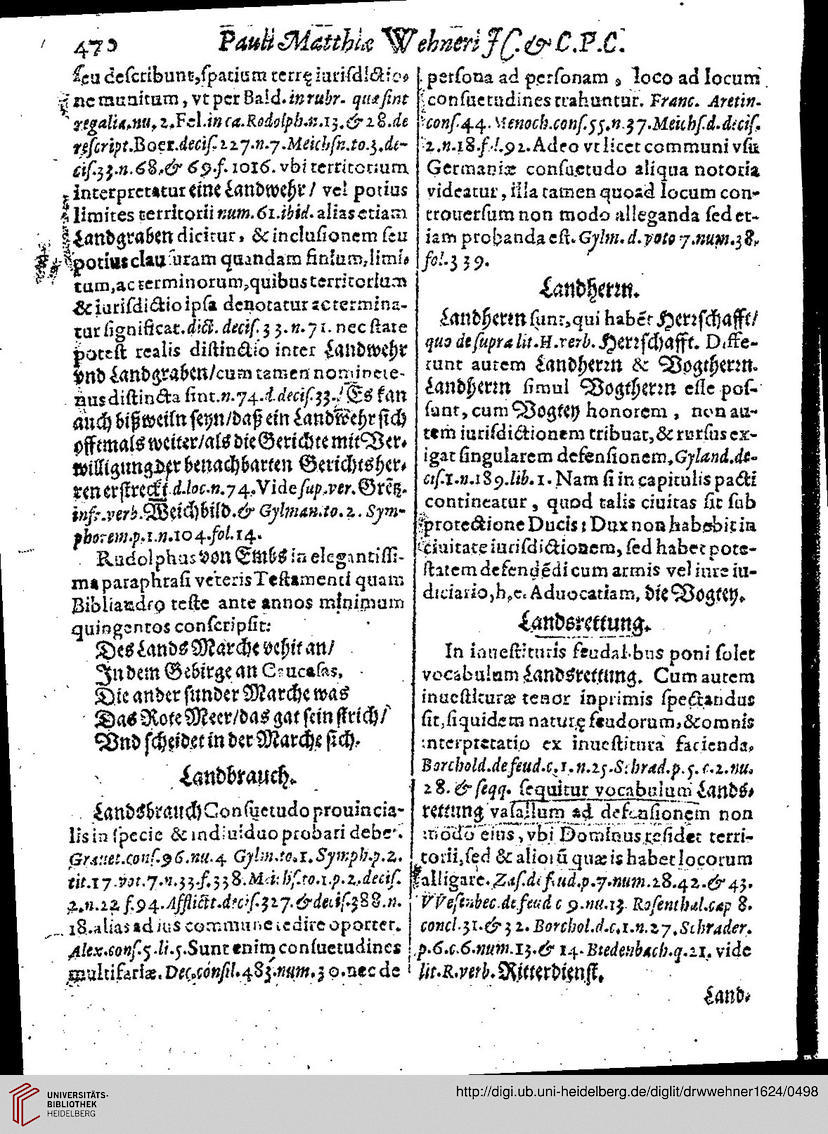 470 Pauli Matthiæ Wehneri JC. & C.P.C.
seu describunt, spatium terrę iurisdictio-
ne munitum, vt per Bald. in rubr. quæ sint
regalia. nu. 2. Fel. in ca. Rodolph. n. 13. & 28. de
rescript. Boer. decis. 227. n. 7. Meichsn. to. 3. de-
cis. 33. n. 68. & 69. f. 1016. vbi territorium
interpretatur eine Landwehr / vel potius
limites territorii num. 61. ibid. alias etiam
Landgraben dicitur, & inclusionem seu
potius clausuram quandam finium, limi-
tum, ac terminorum, quibus territorium
& iurisdictio ipsa denotatur ac termina-
tur significat. dict. decis. 33. n. 71. nec stare
potest realis distinctio inter Landwehr
vnd Landgraben / cum tamen nomine te-
nus distincta sint. n. 74. d. decis. 33. / Es kan
auch bißweiln seyn / daß ein Landwehr sich
offtmals weiter / als die Gerichte mit Ver-
willigung der benachbarten Gerichtsher-
ren erstreckt. d. loc. n. 74. Vide sup. ver. Grētz.
infr. verb. Weichbild. & Gylman. to. 2. Sym-
phorem. p. 1. n. 104. fol. 14.
Rudolphus von Embs in elegantissi-
ma paraphrasi veteris Testamenti quam
Bibliandro teste ante annos minimum
quingentos conscripsit:
Des Lands Marche vehit an /
In dem Gebirge an Caucasas,
Die ander sunder Marche was
Das Rote Meer / das gat sein strich /
Vnd scheidet in der Marche sich.
Landbrauch.
Landsbrauch Consuetudo prouincia-
lis in specie & indiuiduo probari debet.
Grauet. cons. 96. nu. 4 Gylm. to. 1. Symph. p. 2.
tit. 17. vot. 7. n. 33. f. 338. Meichs. to. 1. p. 2. decis.
2. n. 22 f. 94. Afflict. decis. 327. & decis. 388. n.
18. alias ad ius commune redire oportet.
Alex. cons. 5. li. 5. Sunt enim consuetudines
multifariæ. Dec. consil. 483. num. 30. nec de
persona ad personam, loco ad locum
consuetudines trahuntur. Franc. Aretin.
cons. 44. Menoch. cons. 55. n. 37. Meichs. d. decis.
2. n. 18. fol. 92. Adeo vt licet communi vsu
Germaniæ consuetudo aliqua notoria
videatur, illa tamen quoad locum con-
trouersum non modo alleganda sed et-
iam probanda est. Gylm. d. voto 7. num. 38.
fol. 339.
Landherrn.
Landherrn sunt, qui habēt Herrschafft /
quo de supra lit. H. verb. Herrschafft. Diffe-
runt autem Landherrn & Vogtherrn.
Landherrn simul Vogtherrn esse pos-
sunt, cum Vogtey honorem, non au-
tem iurisdictionem tribuat, & rursus ex-
igat singularem defensionem, Gyland. de-
cis. 1. n. 189. lib. 1. Nam si in capitulis pacti
contineatur, quod talis ciuitas sit sub
protectione Ducis: Dux non habebit in
ciuitate iurisdictionem, sed habet pote-
statem defendēdi cum armis vel iure iu-
diciario, h. e. Aduocatiam, die Vogtey.
Landsrettung.
In inuestituris feudalibus poni solet
vocabulum Landsrettung. Cum autem
inuestituræ tenor inprimis spectandus
sit, siquidem naturę feudorum, & omnis
interpretatio ex inuestitura facienda,
Borchold. de feud. c. 1. n. 25. Schrad. p. 5. c. 2. nu.
28. & seqq. sequitur vocabulum Lands-
rettung vasallum ad defensionem non
modo eius, vbi Dominus residet terri-
torii, sed & alioru quæ is habet locorum
alligare. Zas. de feud. p. 7. num. 28. 42. & 43.
VVesenbec. de feud c 9. nu. 13. Rosenthal. cap 8.
concl. 31. & 32. Borchol. d. c. 1. n. 27. Schrader.
p. 6. c. 6. num. 13. & 14. Bredenbach. q. 21. vide
lit. R. verb. Ritterdienst.
Land-
UNIVERSITÄTS-
BIBLIOTHEK
HEIDELBERG
http://digi.ub.uni-heidelberg.de/diglit/drwwehner1624/0498